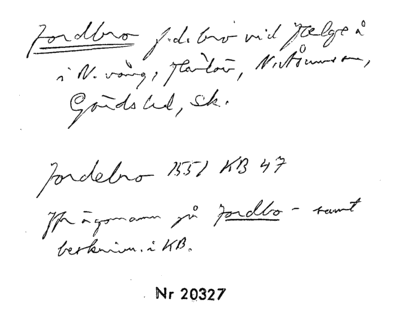 Jordbro f.d. bro vid Helge å
i N. vång, Härlöv, N. Åsum sn,
Gärds hd, Sk.
Jordebro 1551 KB 47
Jfr ägonamn på Jordbo- samt
beskrivn. i KB.
Nr 20327